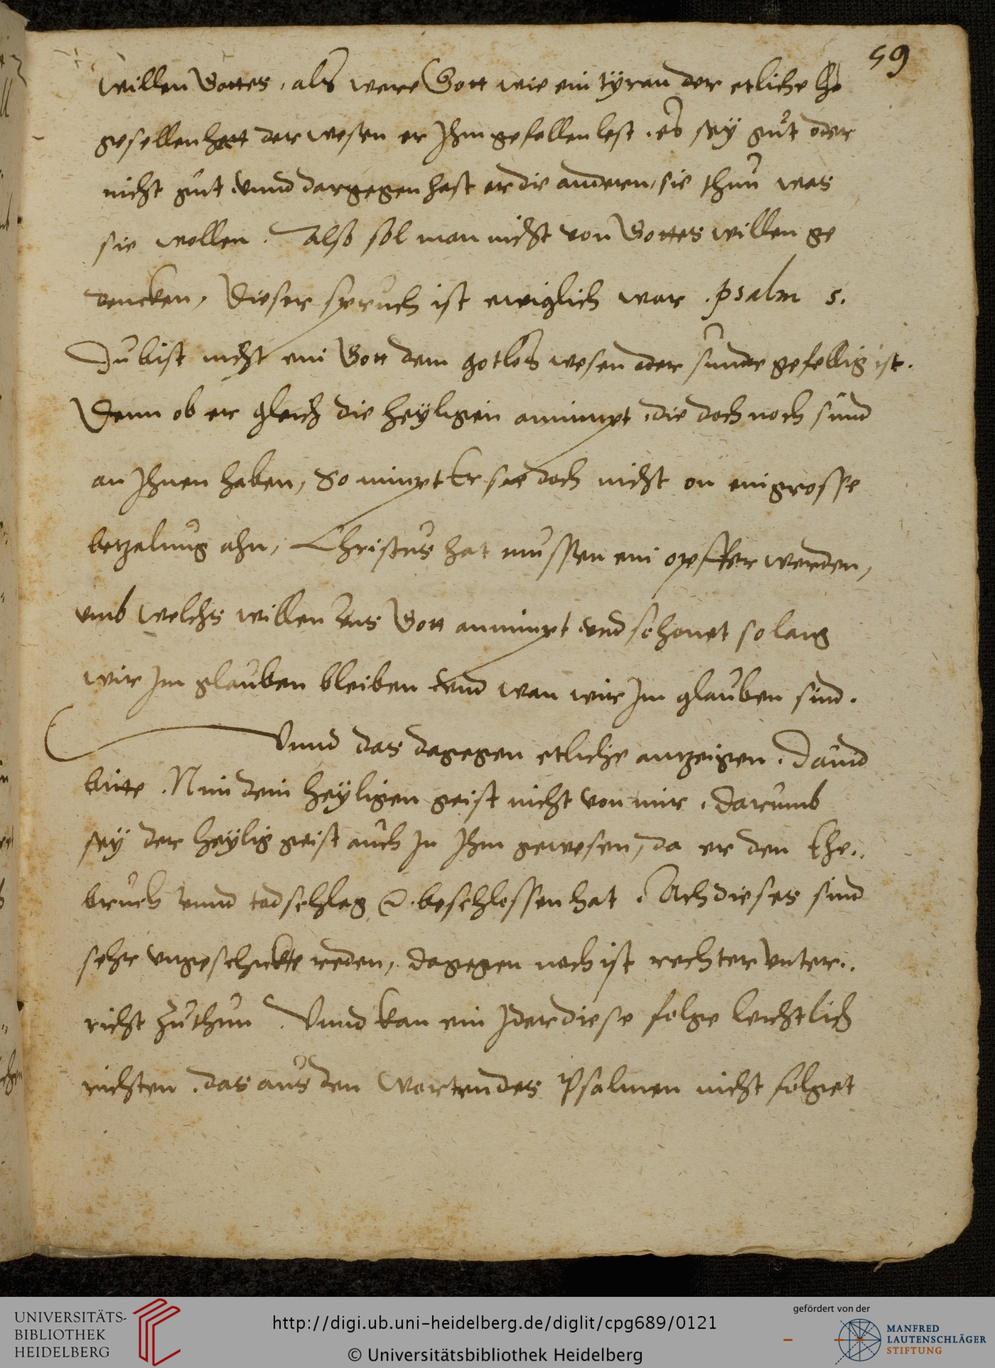 59
willen Gottes, als were Gott wie ein tyran der etliche
gesellen hett der wesen er Ihm gefallen lest, es sey gut oder
nicht gut, vnnd dargegen hast er die anderen, sie thun was
sie wollen. Also sol man nicht von Gottes willen ge
dencken, Dieser spruch ist ewiglich war. psalm 5.
Du bist nicht ein Gott dem gotlos wesen oder sunde gefellig ist.
Denn ob er gleich die heyligen annimpt, die doch noch sund
an Ihnen haben, So nimpt Er sie doch nicht on ein grosse
betzalung ahn, Christus hat mussen ein opffer werden,
vmb welchs willen vns Gott annimpt vnd schonet so lang
wir Im glauben bleiben vnd wan wir Im glauben sind.
Vnnd das dagegen etliche antzeigen. Dauid
bitte. Nim dein heyligen geist nicht von mir, darumb
sey der heylig geist auch In Ihm gewesen, da er den Ehe..
bruch vnnd todschlag beschlossen hat. Ach dieses sind
sehr vngeschickte reden, dagegen noch ist rechter vnter..
richt zuthun. Vnnd kan ein Jder diese folge leichtlich
richten, das aus den worten des Psalmen nicht folget
UNIVERSITÄTS-
BIBLIOTHEK
HEIDELBERG
http://digi.ub.uni-heidelberg.de/diglit/cpg689/0121
© Universitätsbibliothek Heidelberg
gefördert von der
MANFRED
LAUTENSCHLÄGER
STIFTUNG